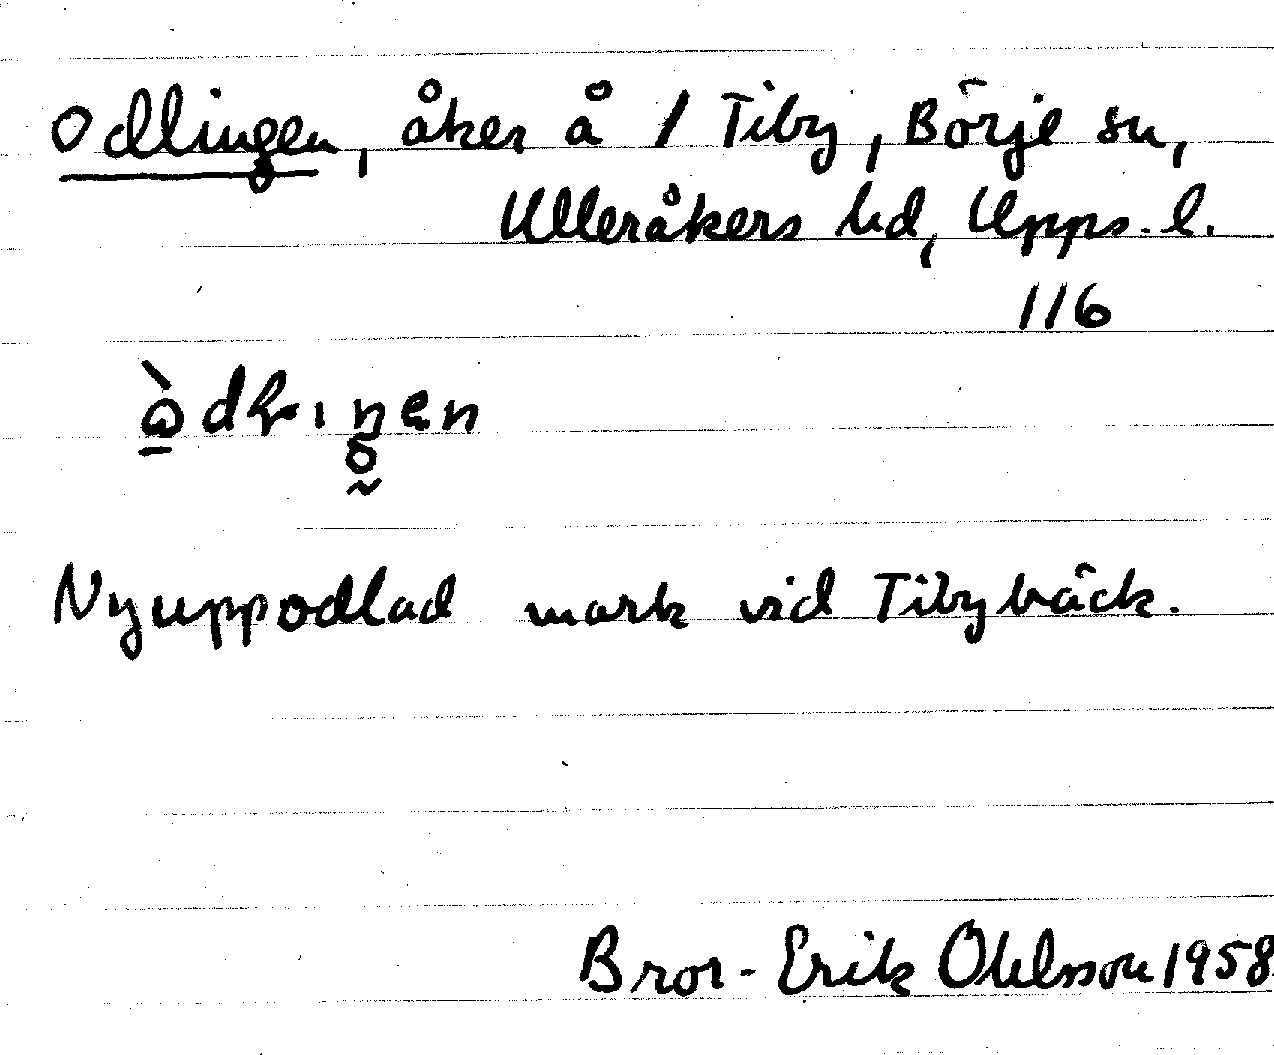 Odlingen, åker å 1 Tiby, Börje sn,
Ulleråkers hd, Upps. l.
116
Nyuppodlad mark vid Tibybäck.
Bror-Erik Ohlsson 1958